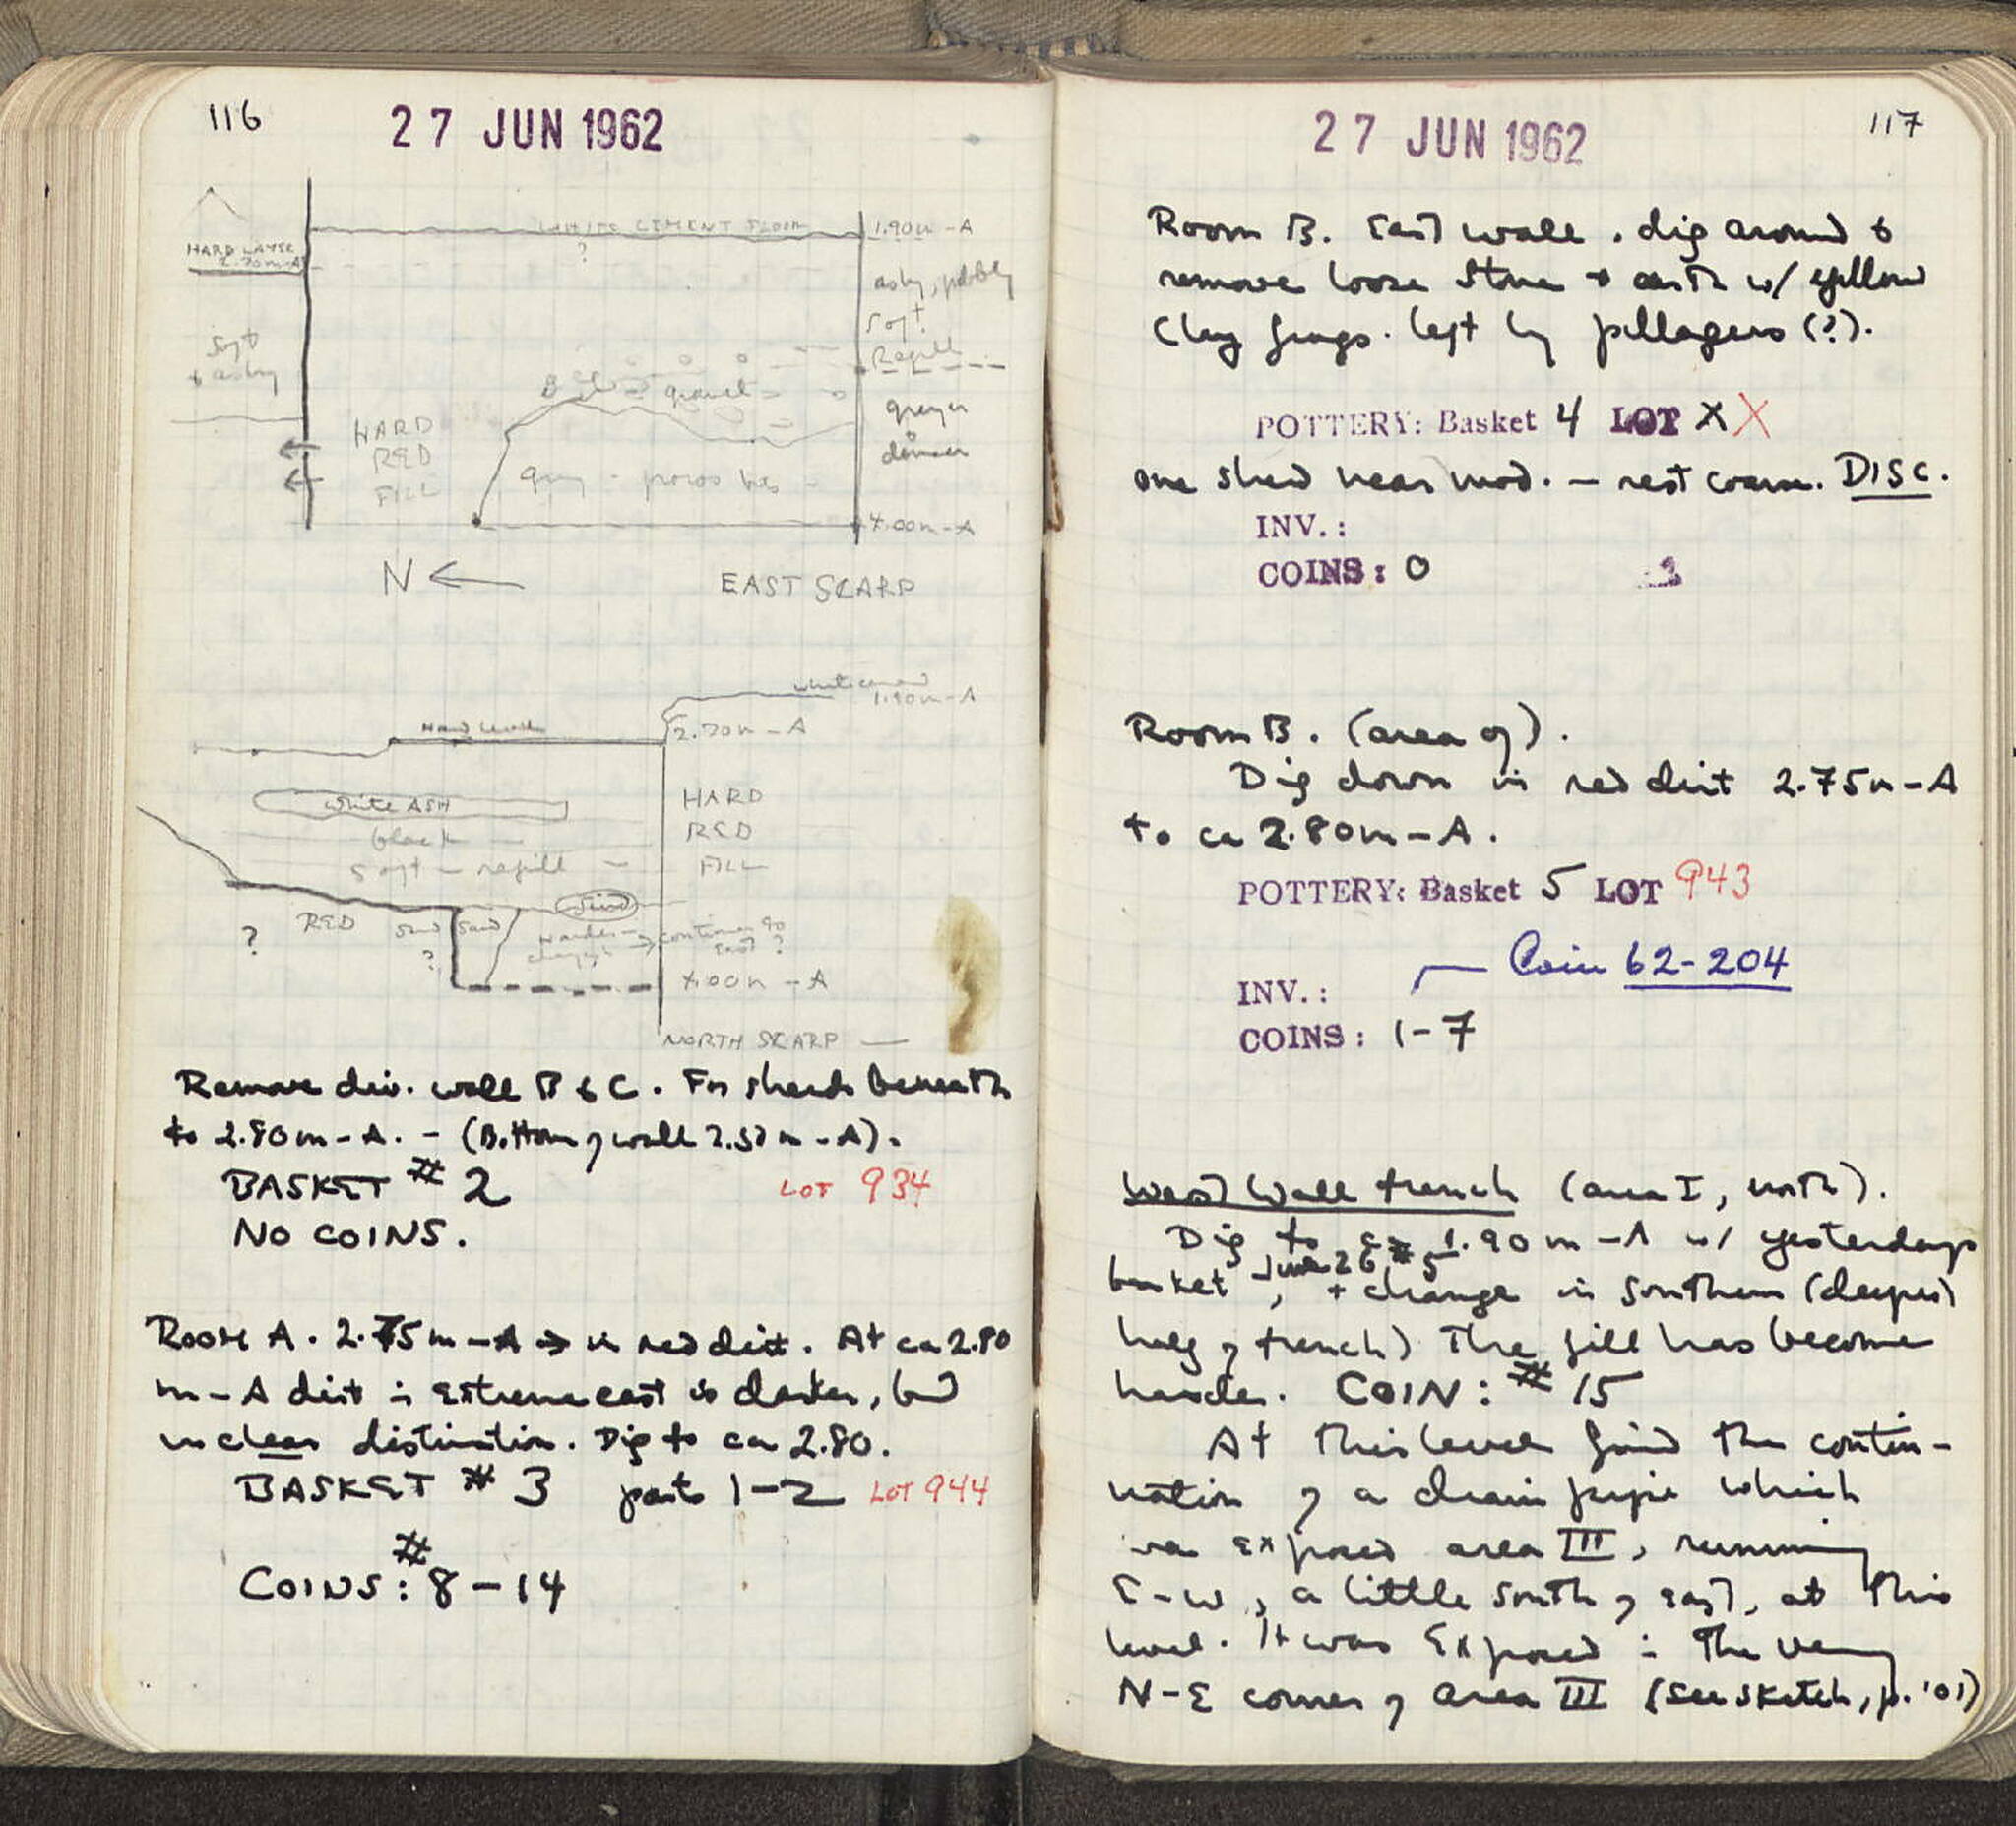 116
27 JUN 1962
WHITE CEMENT FLOOR
?
1.90m-A
HARD LAYER
2.70m-A
ashy, pebbly
soft
Refill
soft
+ ashy
gravel
greyer
denser
HARD
RED
FILL
grey - poros
4.00m-A
N ←
EAST SCARP
white cement
1.90m-A
Hard level
2.70m-A
white ASH
black
soft - refill
HARD
RED
FILL
RED
?
sand
?
harder
→ continues to
east ?
4.00m-A
NORTH SCARP
Remove div. wall B & C. For sherds beneath
to 2.80m-A. - (Bottom of wall m-A).
BASKET # 2 LOT 934
NO COINS.
Room A. 2.75m-A → in red dirt. At ca 2.80
m-A dirt in extreme east is darker, but
unclear distinction. Dig to ca 2.80.
BASKET # 3 parts 1-2 LOT 944
COINS: # 8-14
27 JUN 1962
117
Room B. East wall. dig around &
remove loose stone + earth w/ yellow
clay frags. left by pillagers (?).
POTTERY: Basket 4 LOT X X
one sherd near mod. - rest coarse. DISC.
INV.:
COINS: 0
Room B. (area of).
Dig down in red dirt 2.75m-A
to ca 2.80m-A.
POTTERY: Basket 5 LOT 943
Coin 62-204
INV.:
COINS: 1-7
West Wall trench (area I, north).
Dig to ca 1.90m-A w/ yesterdays
basket June 26 #5, + change in southern (deeper)
half of trench) The fill has become
harder. COIN: # 15
At this level find the contin-
uation of a drain pipe which
was exposed area III, running
E-W, a little south of east, at this
level. It was exposed in the very
N-E corner of area III (see sketch, p. 101)